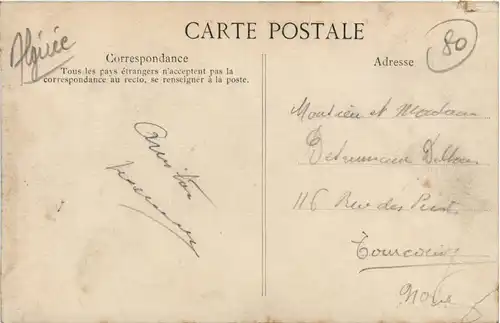 Algérie
CARTE POSTALE
80
Correspondance
Tous les pays étrangers n'acceptent pas la
correspondance au recto, se renseigner à la poste.
Adresse
Monsieur et Madame
116 Rue des Piats
Tourcoing
Nord